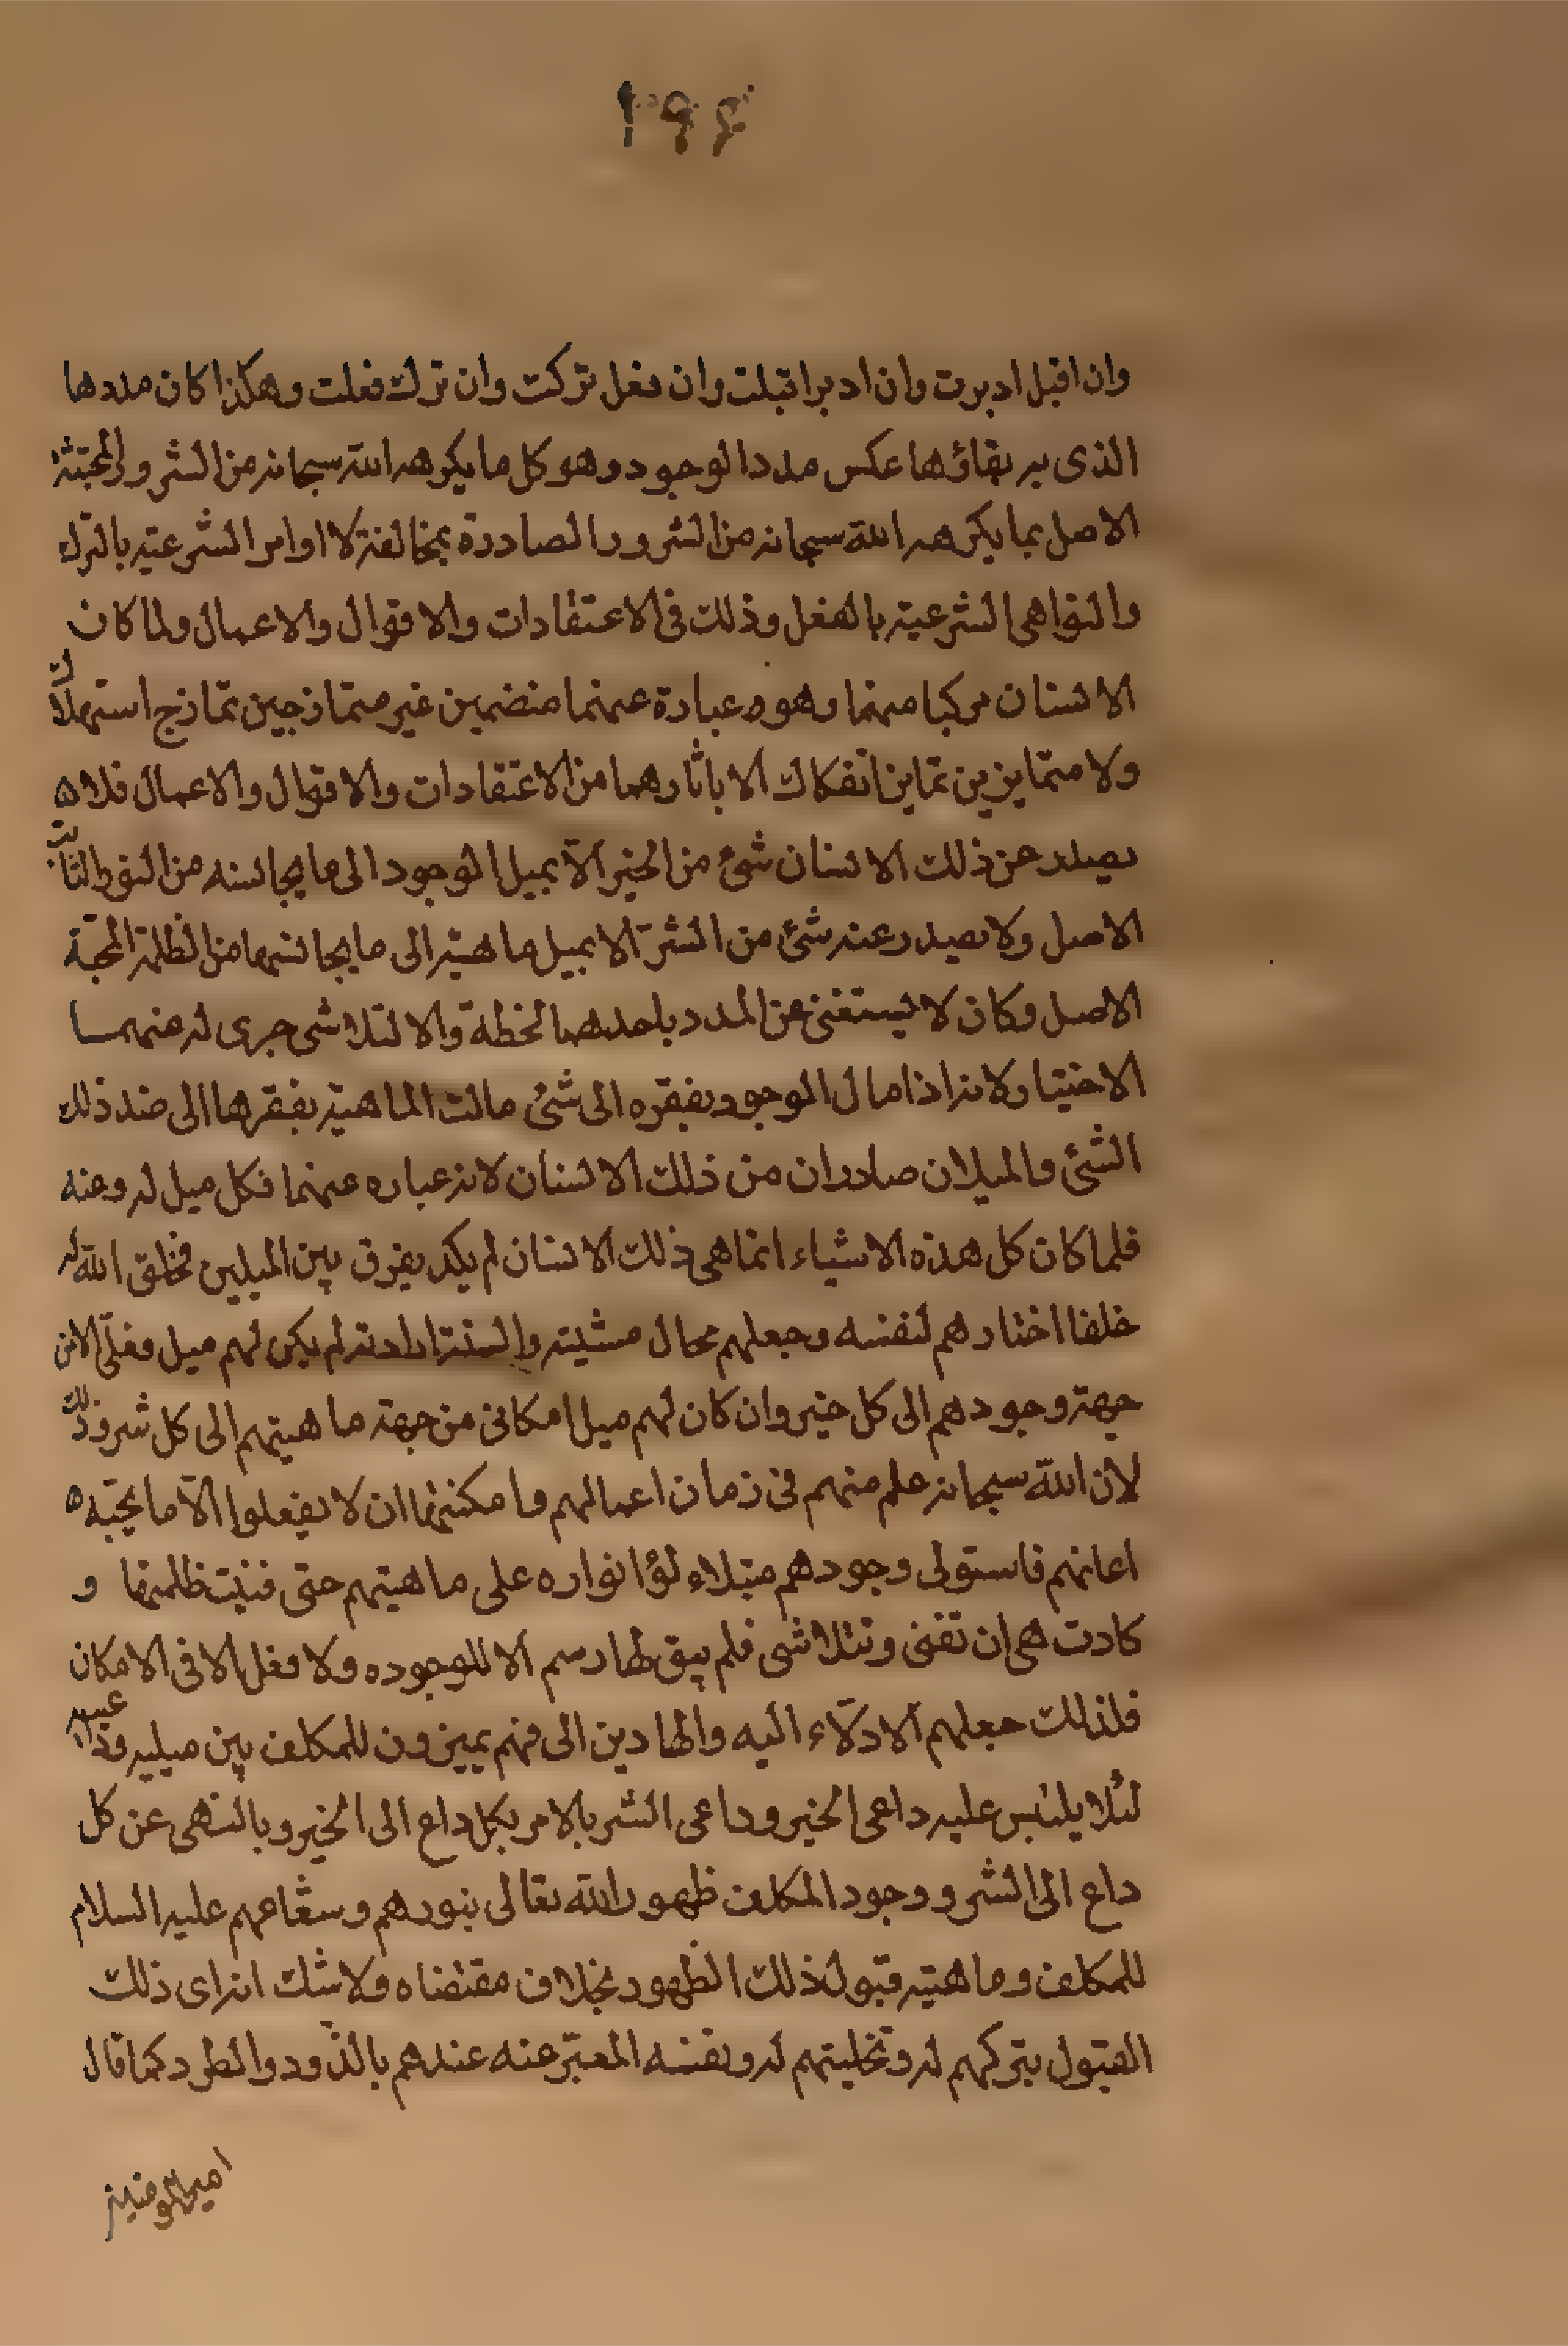 ١٩٤
وان اقبل ادبرت وان ادبر اقبلت وان فعل تركت وان ترك فعلت وهكذا كان مددها
الذى به بقاؤها عكس مدد الوجود وهو كل ما يكرهه الله سبحانه من الشرور المجتثة
الاصل بما يكرهه الله سبحانه من الشرور الصادرة بمخالفة الاوامر الشرعيه بالترك
والنواهى الشرعية بالفعل وذلك فى الاعتقادات والاقوال والاعمال ولما كان
الانسان مركبا منهما وهو عبارة عنهما منضمين غير متمازجين تمازج استهلاك
ولا متمايزين تمايز انفكاك الا باثارهما من الاعتقادات والاقوال والاعمال فلا
يصدر عن ذلك الانسان شئ من الخير الا بميل الوجود الى ما يجانسه من النور الثابت
الاصل ولا يصدر عنه شئ من الشر الا بميل ماهيته الى ما يجانسها من الظلمة المجتثة
الاصل وكان لا يستغنى عن المدد باحدهما لحظة والا لتلاشى جرى له منهما
الاختيار لانه اذا مال الوجود بفقره الى شئ مالت الماهية بفقرها الى ضد ذلك
الشئ والميلان صادران من ذلك الانسان لانه عباره عنهما فكل ميل له وعنه
فلما كان كل هذه الاشياء انما هى ذلك الانسان لم يكد يفرق بين الميلين فخلق الله له
خلقا اختارهم لنفسه وجعلهم محال مشيته والسنة ارادته لم يكن لهم ميل فعلى الا من
جهة وجودهم الى كل خير وان كان لهم ميل امكانى من جهة ماهيتهم الى كل شر وذلك
لان الله سبحانه علم منهم فى زمان اعمالهم وامكنتها ان لا يفعلوا الا ما يحبه
اعانهم فاستولى وجودهم بتلاءلؤ انواره على ماهيتهم حتى فنيت ظلمتها و
كادت هى ان تفنى وتتلاشى فلم يبق لها رسم الا للوجوده ولا فعل الا فى الامكان
فلذلك جعلهم الادلاء اليه والهادين الى فهم يميزون للمكلف بين ميليه
لئلا يلتبس عليه داعى الخير وداعى الشر بالامر بكل داع الى الخير وبالنهى عن كل
داع الى الشر ووجود المكلف ظهور الله تعالى بنورهم وشعاعهم عليه السلام
للمكلف وماهيته قبول ذلك الظهور بخلاف مقتضاه ولا شك انه اى ذلك
القبول بتركهم له وتخليتهم له ونفسه المعبر عنه عندهم بالذود والطرد كما قال
امير المؤمنين